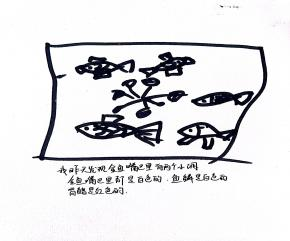 我昨天发现金鱼嘴巴里有两个小洞
金鱼嘴巴里都是白色的、鱼鳞是白色的
有的是红色的.